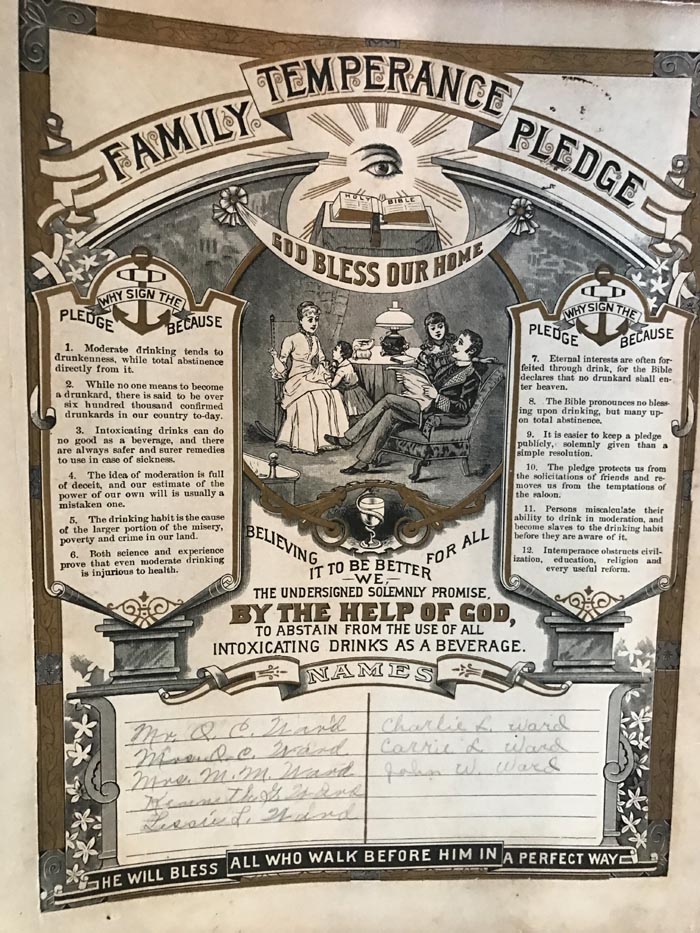 FAMILY TEMPERANCE PLEDGE
HOLY BIBLE
GOD BLESS OUR HOME
WHY SIGN THE
PLEDGE BECAUSE
1. Moderate drinking tends to
drunkenness, while total abstinence
directly from it.
2. While no one means to become
a drunkard, there is said to be over
six hundred thousand confirmed
drunkards in our country to-day.
3. Intoxicating drinks can do
no good as a beverage, and there
are always safer and surer remedies
to use in case of sickness.
4. The idea of moderation is full
of deceit, and our estimate of the
power of our own will is usually a
mistaken one.
5. The drinking habit is the cause
of the larger portion of the misery,
poverty and crime in our land.
6. Both science and experience
prove that even moderate drinking
is injurious to health.
WHY SIGN THE
PLEDGE BECAUSE
7. Eternal interests are often for-
feited through drink, for the Bible
declares that no drunkard shall en-
ter heaven.
8. The Bible pronounces no bless-
ing upon drinking, but many up-
on total abstinence.
9. It is easier to keep a pledge
publicly, solemnly given than a
simple resolution.
10. The pledge protects us from
the solicitations of friends and re-
moves us from the temptations of
the saloon.
11. Persons miscalculate their
ability to drink in moderation, and
become slaves to the drinking habit
before they are aware of it.
12. Intemperance obstructs civil-
ization, education, religion and
every useful reform.
BELIEVING
IT TO BE BETTER
FOR ALL
WE,
THE UNDERSIGNED SOLEMNLY PROMISE,
BY THE HELP OF GOD,
TO ABSTAIN FROM THE USE OF ALL
INTOXICATING DRINKS AS A BEVERAGE.
NAMES
Mr O. C. Ward
Mrs. O. C. Ward
Mrs. M. M. Ward
Kenneth G Ward
Lessie L. Ward
Charlie L. Ward
Carrie L Ward
John W. Ward
HE WILL BLESS ALL WHO WALK BEFORE HIM IN A PERFECT WAY